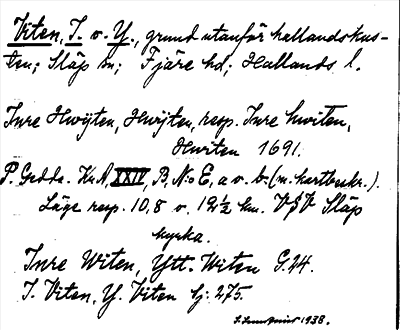 Viten, I. o. Y., grund utanför hallandskus-
ten; Släp sn; Fjäre hd; Hallands l.
Inre Hwijten, Hwijten, resp. Inre hwiten,
Hwiten 1691.
P. Gedda. KrA, XXIV, B, No E, a o. b. (m. kartbeskr.).
Läge resp. 10,8 o. 12½ km. VSV Släp
kyrka.
Inre Witen, Ytt. Witen G.44.
I. Viten, Y. Viten Sj: 275.
1938.